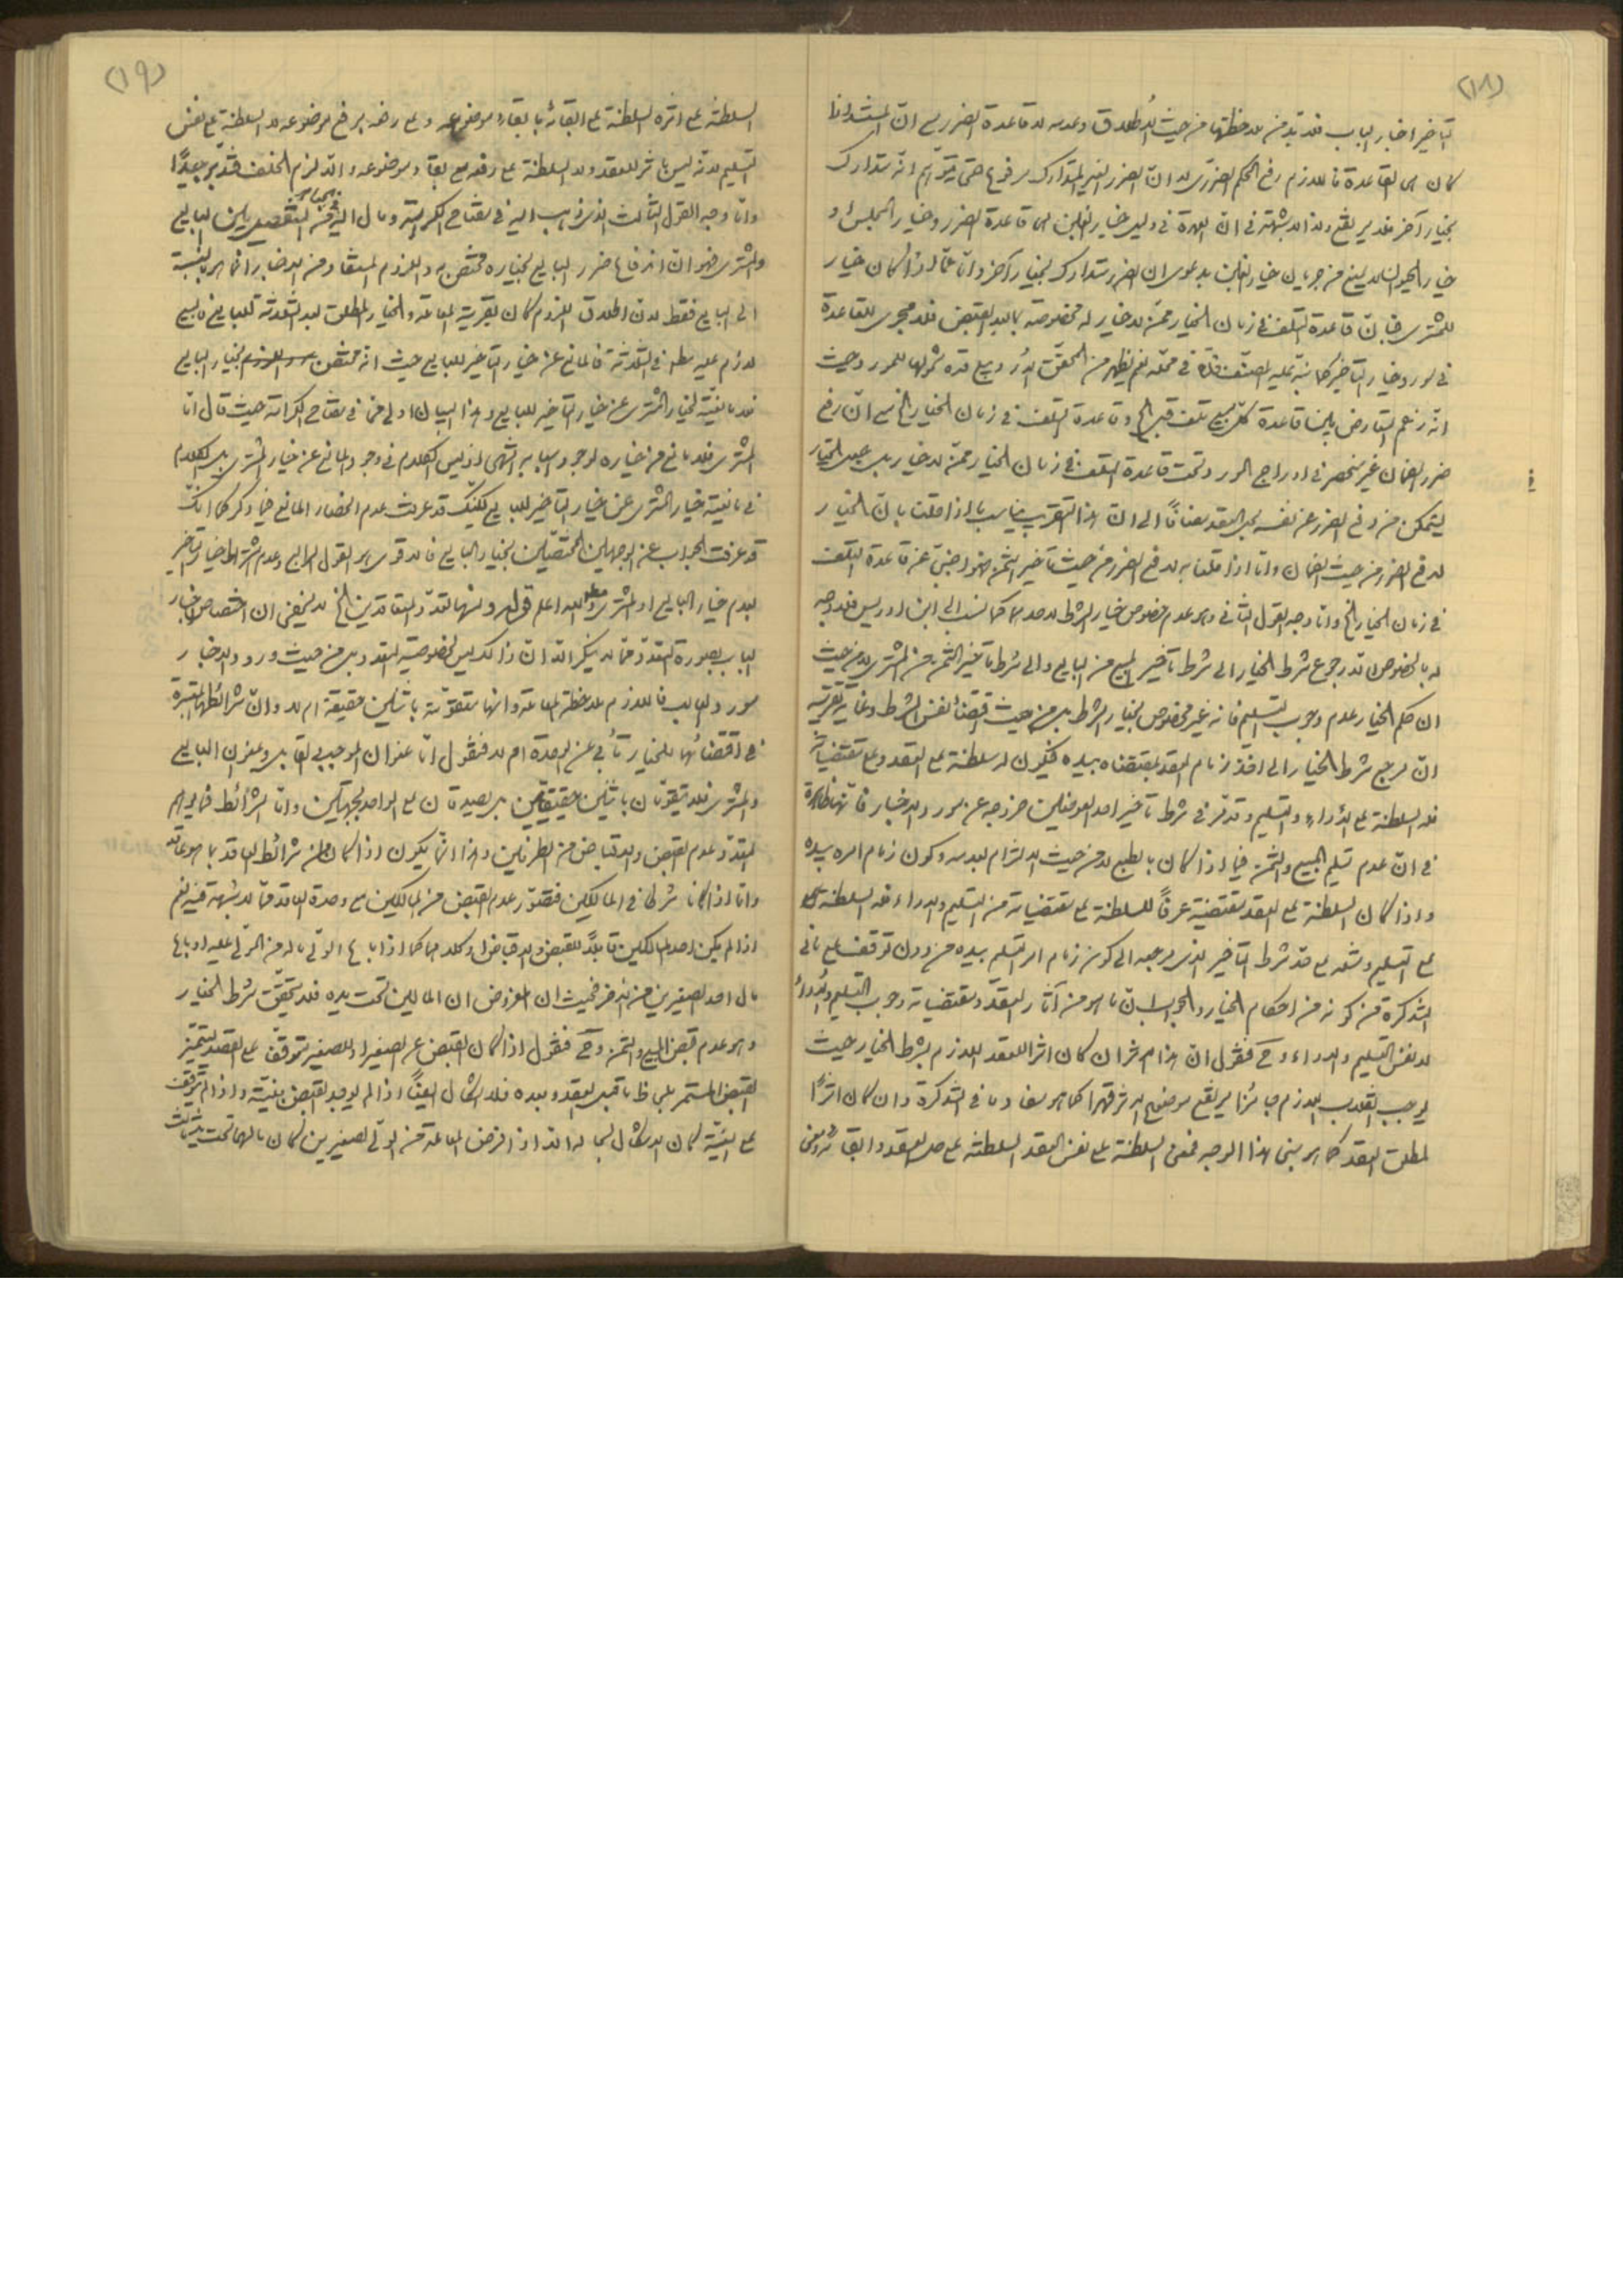 (١٨)
التأخير اخبار الباب فلا بد من ملاحظتها من حيث الاطلاق وعدمه لا قاعدة الضرر مع ان المستند اذا
كان هى القاعدة فاللازم رفع الحكم الضررى لا ان الضرر الغير المتدارك مرفوع حتى يتوهم انه متدارك
بخيار آخر فلا يرتفع ولذا لا شبهة فى ان العمدة فى دليل خيار الغبن هى قاعدة الضرر وخيار المجلس او
خيار الحيوان لا يمنع من جريان خيار الغبن بدعوى ان الضرر متدارك بخيار آخر واما عما اذا كان خيار
للمشترى فبان قاعدة التلف فى زمان الخيار ممن لا خيار له مخصوصة بما بعد القبض فلا مجرى للقاعدة
فى مورد خيار التأخير كما نبه عليه المصنف فى محله نعم يظهر من المحقق شمولها للمورد حيث
انه زعم التعارض بين قاعدة كل مبيع تلف قبل الخ وقاعدة التلف فى زمان الخيار الخ مع ان رفع
ضرر الضمان غير منحصر فى ادراج المورد تحت قاعدة التلف فى زمان الخيار ممن لا خيار بل بجعل الخيار
ليتمكن من دفع الضرر عن نفسه بحل العقد مضافا الى ان هذا التقريب يناسب ما اذا قلنا بان الخيار
لدفع الضرر من حيث الضمان واما اذا قلنا به لدفع الضرر من حيث تأخير الثمن فهو اجنبى عن قاعدة التلف
فى زمان الخيار الخ واما وجه القول الثانى وهو عدم خصوص خيار الشرط لاحدهما كما نسب الى ابن ادريس فلا وجه
له بالخصوص الا رجوع شرط الخيار الى شرط تأخير المبيع من البايع والى شرط تأخير الثمن من المشترى لا من حيث
ان حكم الخيار عدم وجوب التسليم فانه غير مخصوص بخيار الشرط بل من حيث اقتضاء نفس الشرط وغاية تقريبه
ان مرجع شرط الخيار الى اخذ زمام العقد بمقتضاه بيده فيكون له سلطنة على العقد وعلى مقتضياته
فله السلطنة على الاداء والتسليم وقد مر فى شرط تأخير احد العوضين خروجه عن مورد الاخبار فانها ظاهرة
فى ان عدم تسليم المبيع والثمن فيما اذا كان بالطبع لا من حيث الالتزام بعدمه وكون زمام امره بيده
واذا كان السلطنة على العقد مقتضية عرفا للسلطنة على مقتضياته من التسليم والاداء فله السلطنة
على التسليم وعدمه على حد شرط التأخير الذى مرجعه الى كون زمام امر التسليم بيده من دون توقف على ما فى
التذكرة من كونه من احكام الخيار والجواب ان ما هو من آثار العقد ومقتضياته وجوب التسليم والاداء
لا نفس التسليم والاداء وح فنقول ان هذا الاثر ان كان اثرا للعقد اللازم بشرط الخيار حيث
يوجب انقلاب اللازم جائزا يرتفع موضوع الاثر قهرا كما هو مفاد ما فى التذكرة وان كان اثرا
لمطلق العقد كما هو مبنى هذا الوجه فمعنى السلطنة على نفس العقد السلطنة على حل العقد وابقائه ومعنى
(١٩)
السلطنة على اثره السلطنة على ابقائه بابقاء موضوعه وعلى رفعه برفع موضوعه لا السلطنة على نفس
التسليم لانه ليس باثر للعقد ولا السلطنة على رفعه مع بقاء موضوعه والا لزم الخلف فتدبر جيدا
واما وجه القول الثالث الذى ذهب اليه فى مفتاح الكرامة ومال اليه فى الجواهر من التفصيل بين البايع
والمشترى فهو ان اندفاع ضرر البايع بخياره مختص به واللزوم المستفاد من الاخبار انما هو بالنسبة
الى البايع فقط لان اطلاق اللزوم كان بقرينة المقابلة والخيار المطلق بعد الثلاثة للبايع فالبيع
لازم عليه مطلقا فى الثلاثة فالمانع عن خيار التأخير للبايع حيث انه مختص بخيار البايع
فلا مانعية لخيار المشترى عن خيار التأخير للبايع وهذا البيان اولى مما فى مفتاح الكرامة حيث قال اما
المشترى فلا مانع من خياره لوجود اسبابه انتهى اذ ليس الكلام فى وجود المانع عن خيار المشترى بل الكلام
فى مانعية خيار المشترى عن خيار التأخير للبايع لكنك قد عرفت عدم انحصار المانع فيما ذكر كما انك
قد عرفت الجواب عن الوجهين المختصين بخيار البايع فالاقوى هو القول الرابع وعدم اشتراط خيار التأخير
بعدم خيار البايع او المشترى مطلقا والله اعلم قوله ومنها تعدد المتعاقدين الخ لا يخفى ان اختصاص اخبار
الباب بصورة التعدد مما لا ينكر الا ان ذلك ليس لخصوصية التعدد بل من حيث ورود الاخبار
مورد الغالب فاللازم ملاحظة المعاملة وانها متقومة باثنين حقيقة ام لا وان شرائطها المعتبرة
فى اقتضائها للخيار تأبى عن الوحدة ام لا فنقول اما عنوان الموجب والقابل وعنوان البايع
والمشترى فلا يتقومان باثنين حقيقيين بل يصدقان على الواحد بجهتين واما الشرائط فما يوهم
التعدد عدم القبض والاقباض من الطرفين وهذا انما يكون اذا كان من شرائط العاقد بما هو عاقد
واما اذا كانا شرطا فى المالكين فتصور عدم القبض من المالكين مع وحدة العاقد مما لا شبهة فيه نعم
اذا لم يكن احد المالكين قابلا للقبض والاقباض او كلاهما كما اذا باع الولى ماله من المولى عليه او باع
مال احد الصغيرين من الاخر فحيث ان المفروض ان المالين تحت يده فلا يتحقق شرط الخيار
وهو عدم قبض المبيع والثمن وح فنقول اذا كان القبض عن الصغير او للصغير يتوقف على القصد لتميز
القبض المستمر بلحاظ ما قبل العقد وبعده فلا اشكال ايضا اذا لم يوجد القبض بنيته واذا لم يتوقف
على النية كان الاشكال بحاله الا اذا فرض المعاملة من الولى لصغيرين كان مالهما تحت يد ثالث